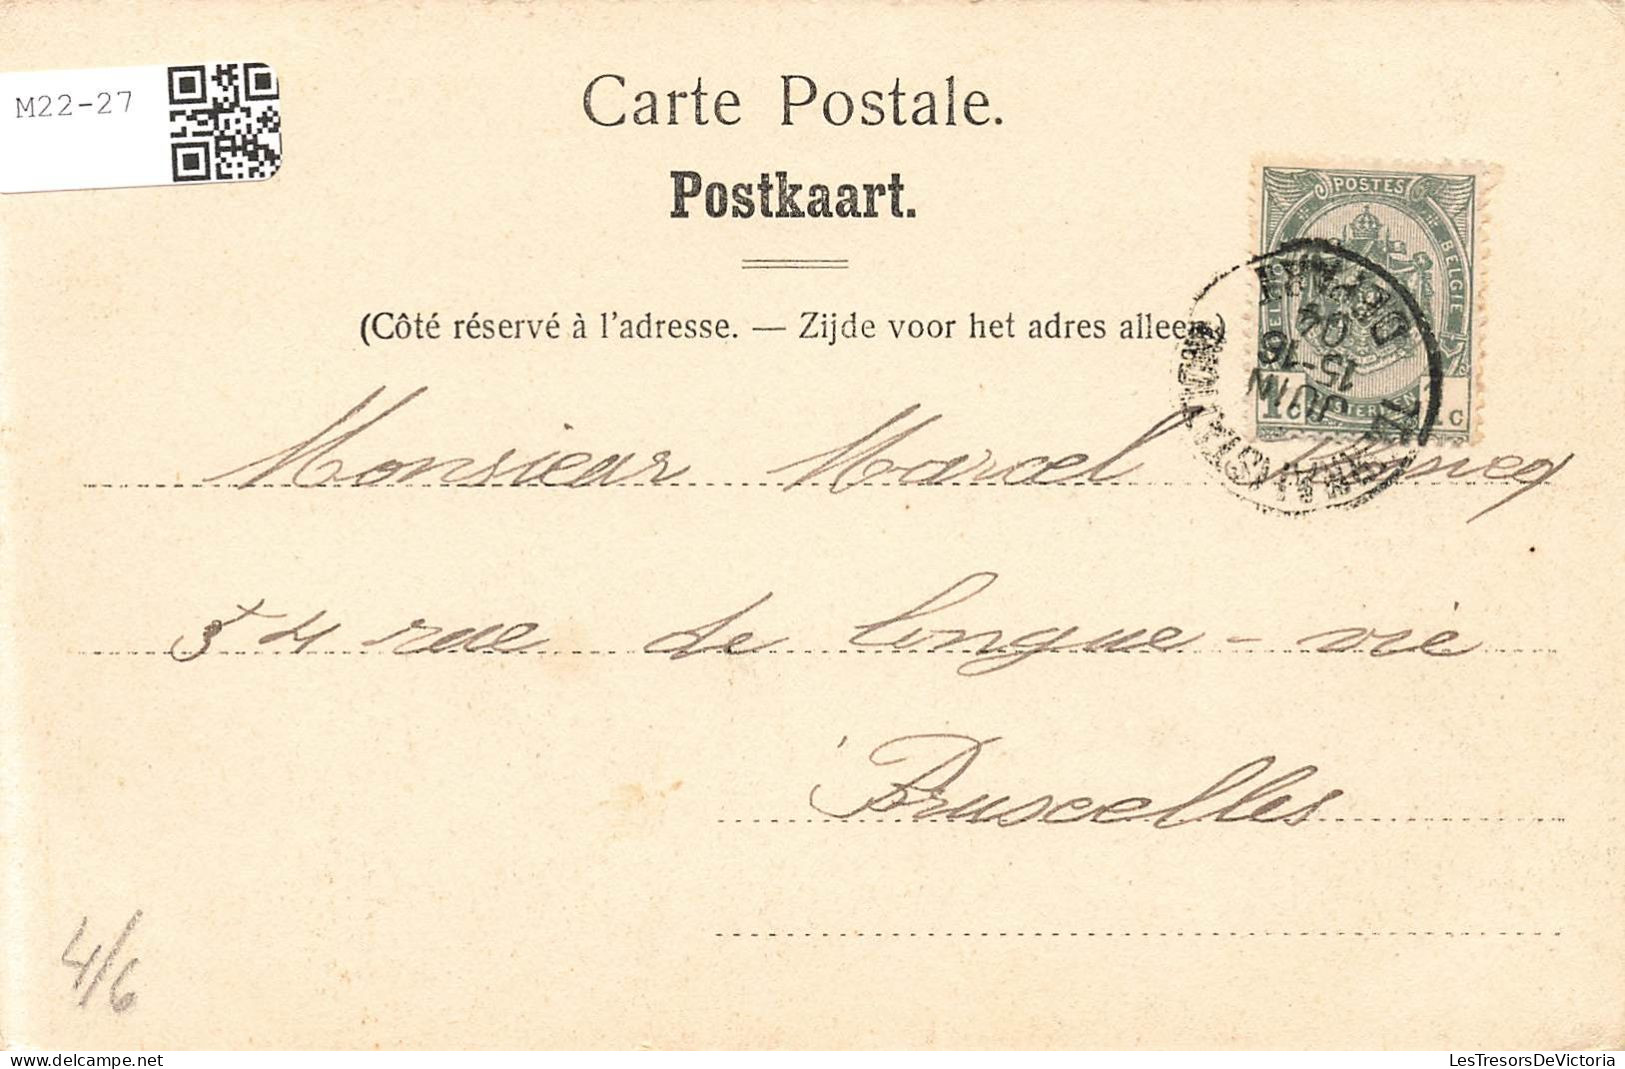 M22-27
Carte Postale.
Postkaart.
(Côté réservé à l'adresse. — Zijde voor het adres alleen.)
POSTES
BELGIE
1c
C
DEPART
04
15-16
JUIN
Monsieur Marcel
54 rue de longue-vie
Bruxelles
4/6
LesTresorsDeVictoria
delcampe.net